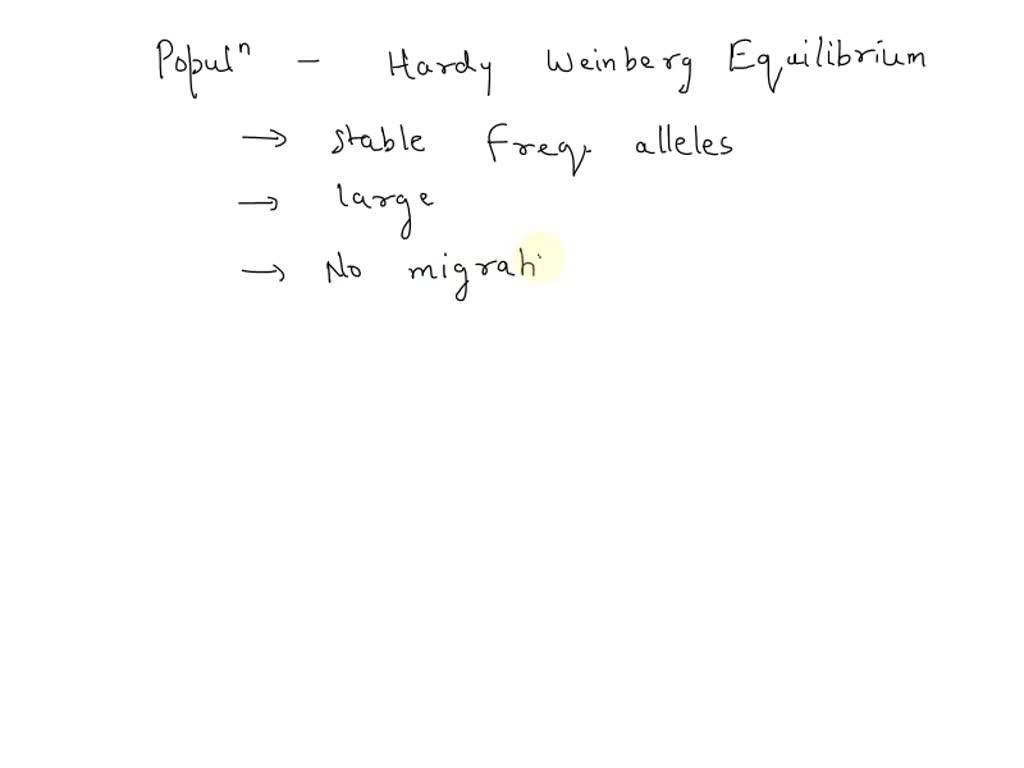 Populⁿ - Hardy Weinberg Equilibrium
→ stable freq. alleles
→ large
→ No migrati